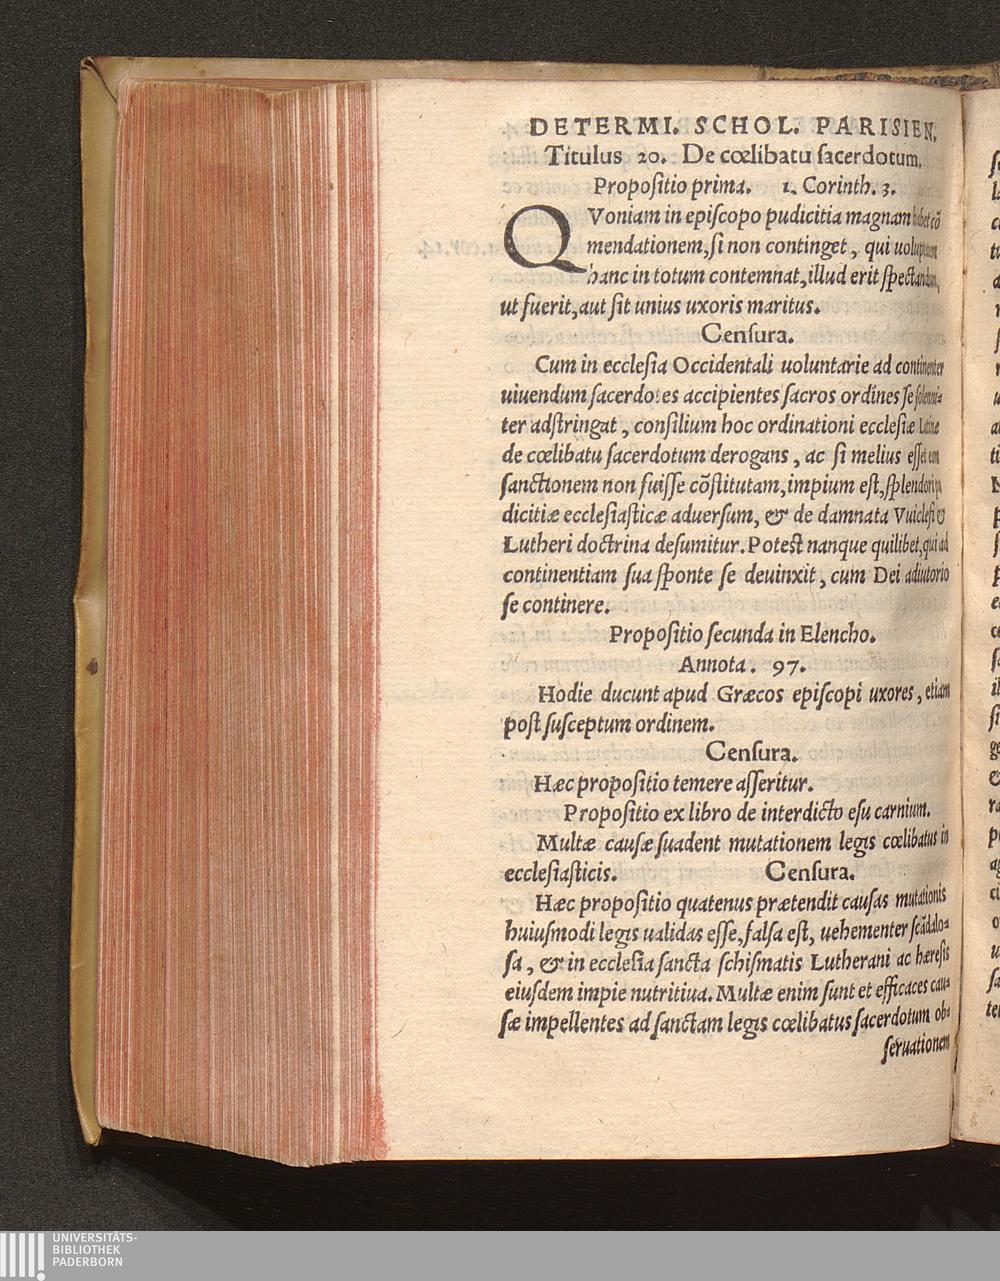 DETERMI. SCHOL. PARISIEN.
Titulus 20. De cœlibatu ſacerdotum.
Propoſitio prima. 1. Corinth. 3.
QVoniam in epiſcopo pudicitia magnam habet cõ
mendationem, ſi non continget, qui uoluptatem
hanc in totum contemnat, illud erit ſpectandum,
ut fuerit, aut ſit unius uxoris maritus.
Cenſura.
Cum in eccleſia Occidentali uoluntarie ad continenter
uiuendum ſacerdotes accipientes ſacros ordines ſe ſolenni-
ter adſtringat, conſilium hoc ordinationi eccleſiæ Latinæ
de cœlibatu ſacerdotum derogans, ac ſi melius eſſet eam
ſanctionem non fuiſſe cõſtitutam, impium eſt, ſplendori pu
dicitiæ eccleſiaſticæ aduerſum, & de damnata Vuicleſi &
Lutheri doctrina deſumitur. Poteſt nanque quilibet, qui ad
continentiam ſua ſponte ſe deuinxit, cum Dei adiutorio
ſe continere.
Propoſitio ſecunda in Elencho.
Annota. 97.
Hodie ducunt apud Græcos epiſcopi uxores, etiam
poſt ſuſceptum ordinem.
Cenſura.
Hæc propoſitio temere aſſeritur.
Propoſitio ex libro de interdicto eſu carnium.
Multæ cauſæ ſuadent mutationem legis cœlibatus in
eccleſiaſticis. Cenſura.
Hæc propoſitio quatenus prætendit cauſas mutationis
huiuſmodi legis ualidas eſſe, falſa eſt, uehementer ſcãdalo-
ſa, & in eccleſia ſancta ſchiſmatis Lutherani ac hæreſis
eiuſdem impie nutritiua. Multæ enim ſunt et efficaces cau-
ſæ impellentes ad ſanctam legis cœlibatus ſacerdotum ob-
ſeruationem
UNIVERSITÄTS-
BIBLIOTHEK
PADERBORN